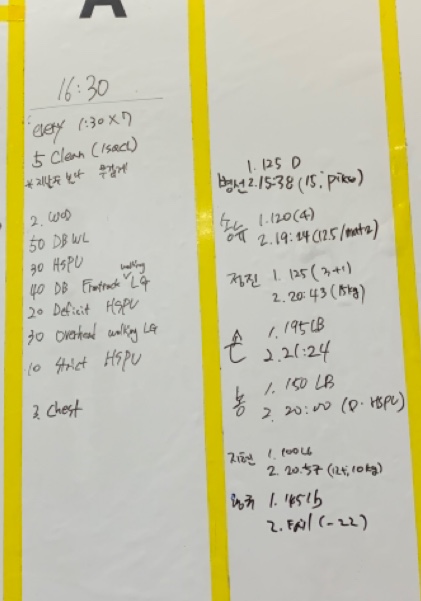 A
16:30
every 1:30 × 7
5 Clean (1sec)
* 지난주 보다 무겁게
2. WOD
50 DB WL
30 HSPU
40 DB Frontrack walking LG
20 Deficit HSPU
30 Overhead walking LG
10 Strict HSPU
3. Chest
1. 125 D
병선 2. 15:38 (15, pike)
1. 120 (4)
2. 19:24
정진 1. 125 (3+1)
2. 20:43 (15kg)
손 1. 195LB
2. 21:24
홍 1. 150 LB
2. 20:00 (D. HSPU)
지현 1. 100LB
2. 20:57 (12t, 10kg)
1. 145lb
2. Fail (-22)